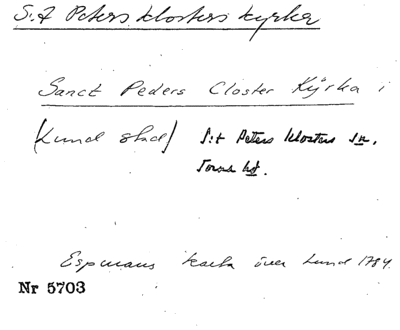 S:t Peters klosters kyrka
Sanct Peders Closter Kÿrka i
(Lund stad) S:t Peters klosters sn.
Torna hd.
Espmans karta över Lund 1784.
Nr 5703